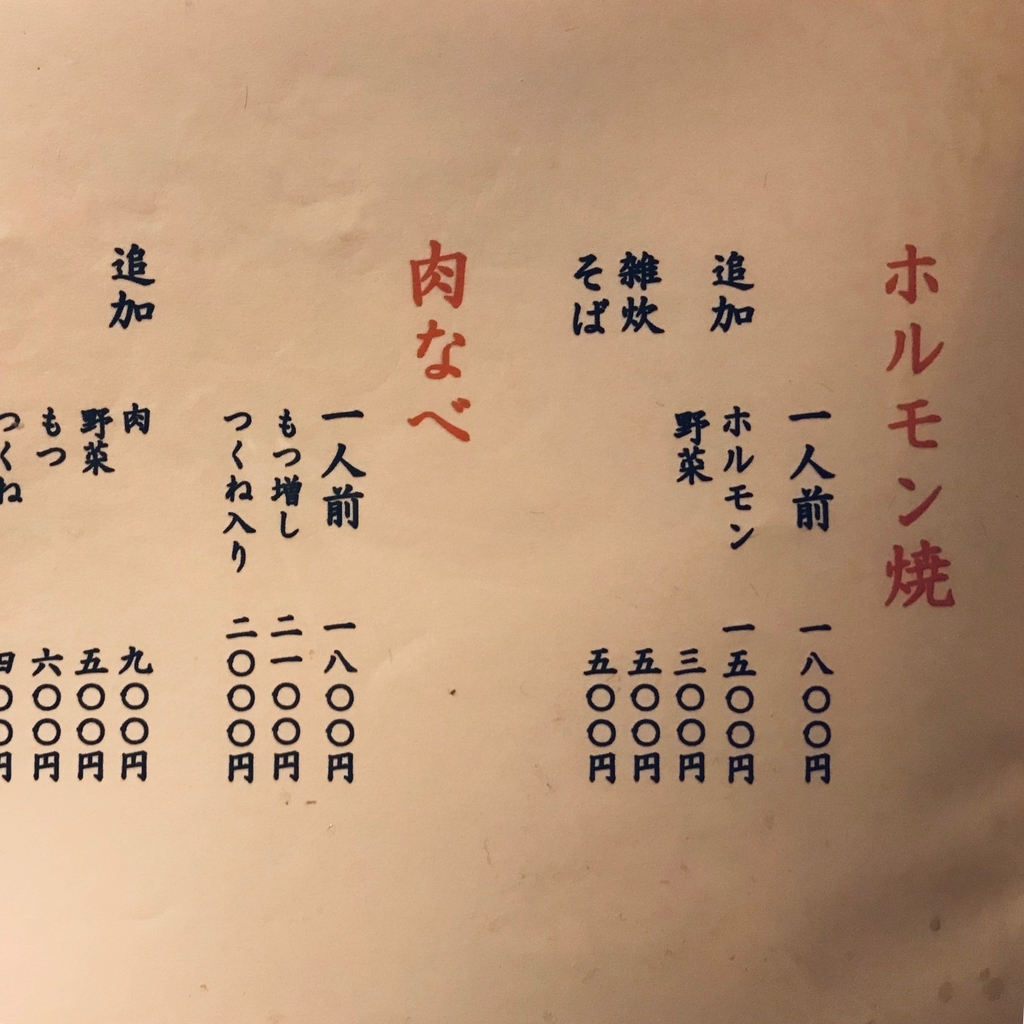 ホルモン焼
一人前 一八〇〇円
追加 ホルモン 一五〇〇円
野菜 三〇〇円
雑炊 五〇〇円
そば 五〇〇円
肉なべ
一人前 一八〇〇円
もつ増し 二一〇〇円
つくね入り 二〇〇〇円
追加 肉 九〇〇円
野菜 五〇〇円
もつ 六〇〇円
つくね 四〇〇円